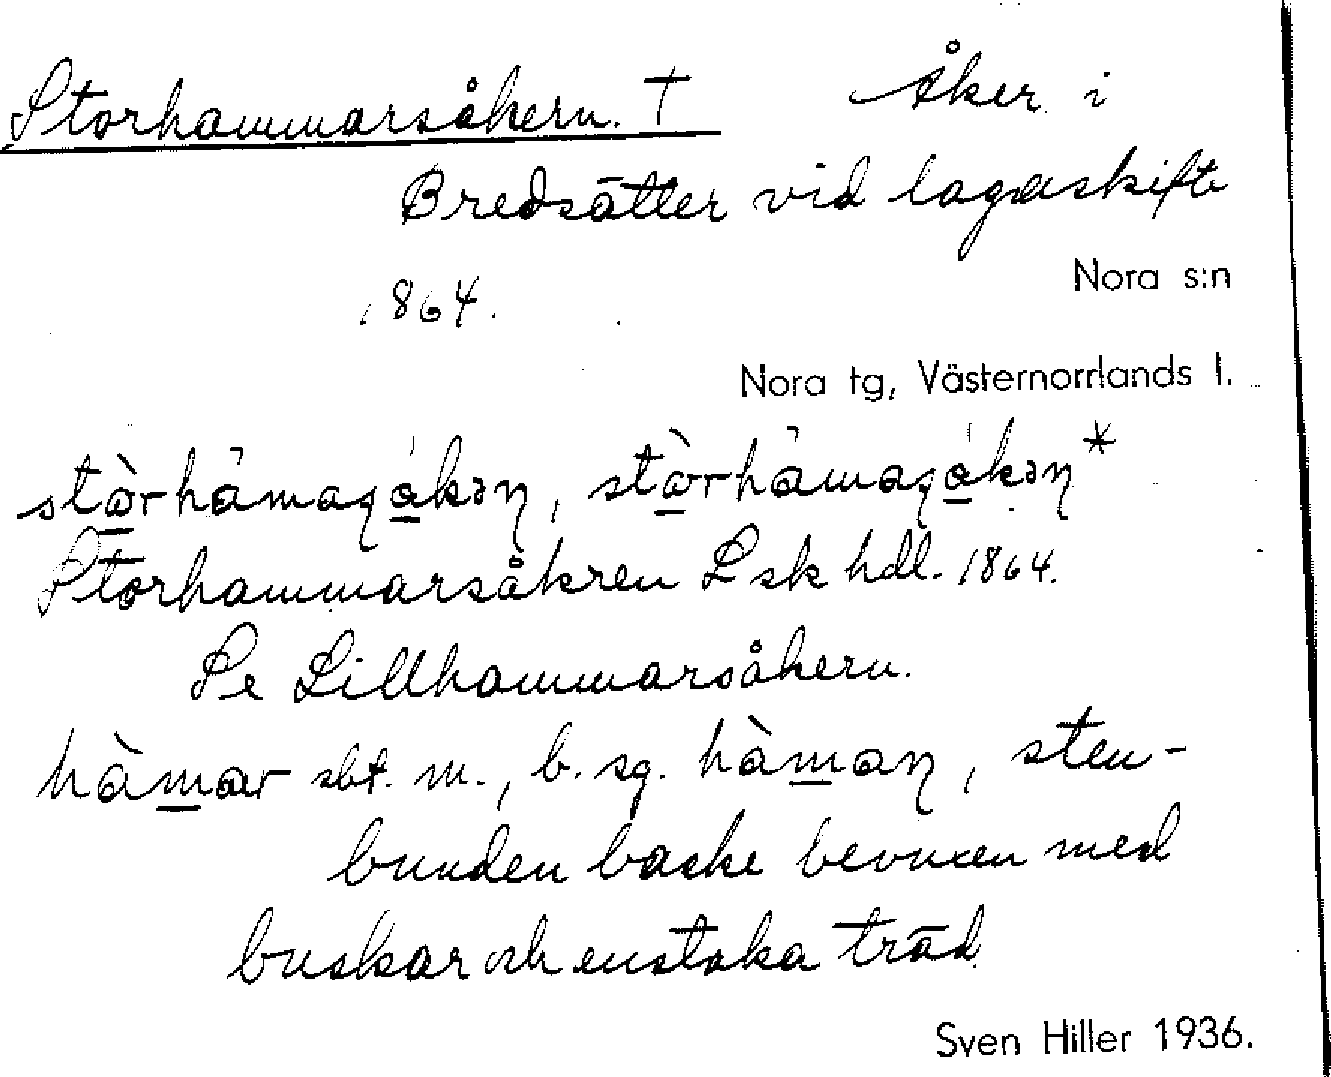 Storhammarsåkern. † Åker i
Bredsätter vid lagaskifte
1864.
Nora s:n
Nora tg, Västernorrlands l.
Storhammarsåkren Lsk hdl. 1864.
Se Lillhammarsåkern.
hàmar sbt. m., b. sg. hàmaɳ, sten-
bunden backe bevuxen med
buskar och enstaka träd
Sven Hiller 1936.